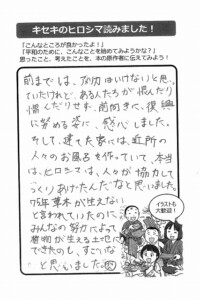 キセキのヒロシマ読みました！
「こんなところが良かったよ！」
「平和のために、こんなことを始めてみようかな？」
思ったこと、考えたことを、本の原作者に伝えてみよう！
前までは、アメリカはいけないと思っ
ていたけれど、ある人たちが恨んだり
憎んだりせず、前向きへ、復興
に努める姿に、感心しました。
そして、建てた家には、近所の
人々のお風呂を作っていて、本当
は、ヒロシマは、人々が協力して
つくりあげたんだなと思いました。
75年草木が生えない
と言われていたのに
みんなの努力によって
植物が生える土地に
できたのし、すごいな
と思いました。
イラストも
大歓迎！